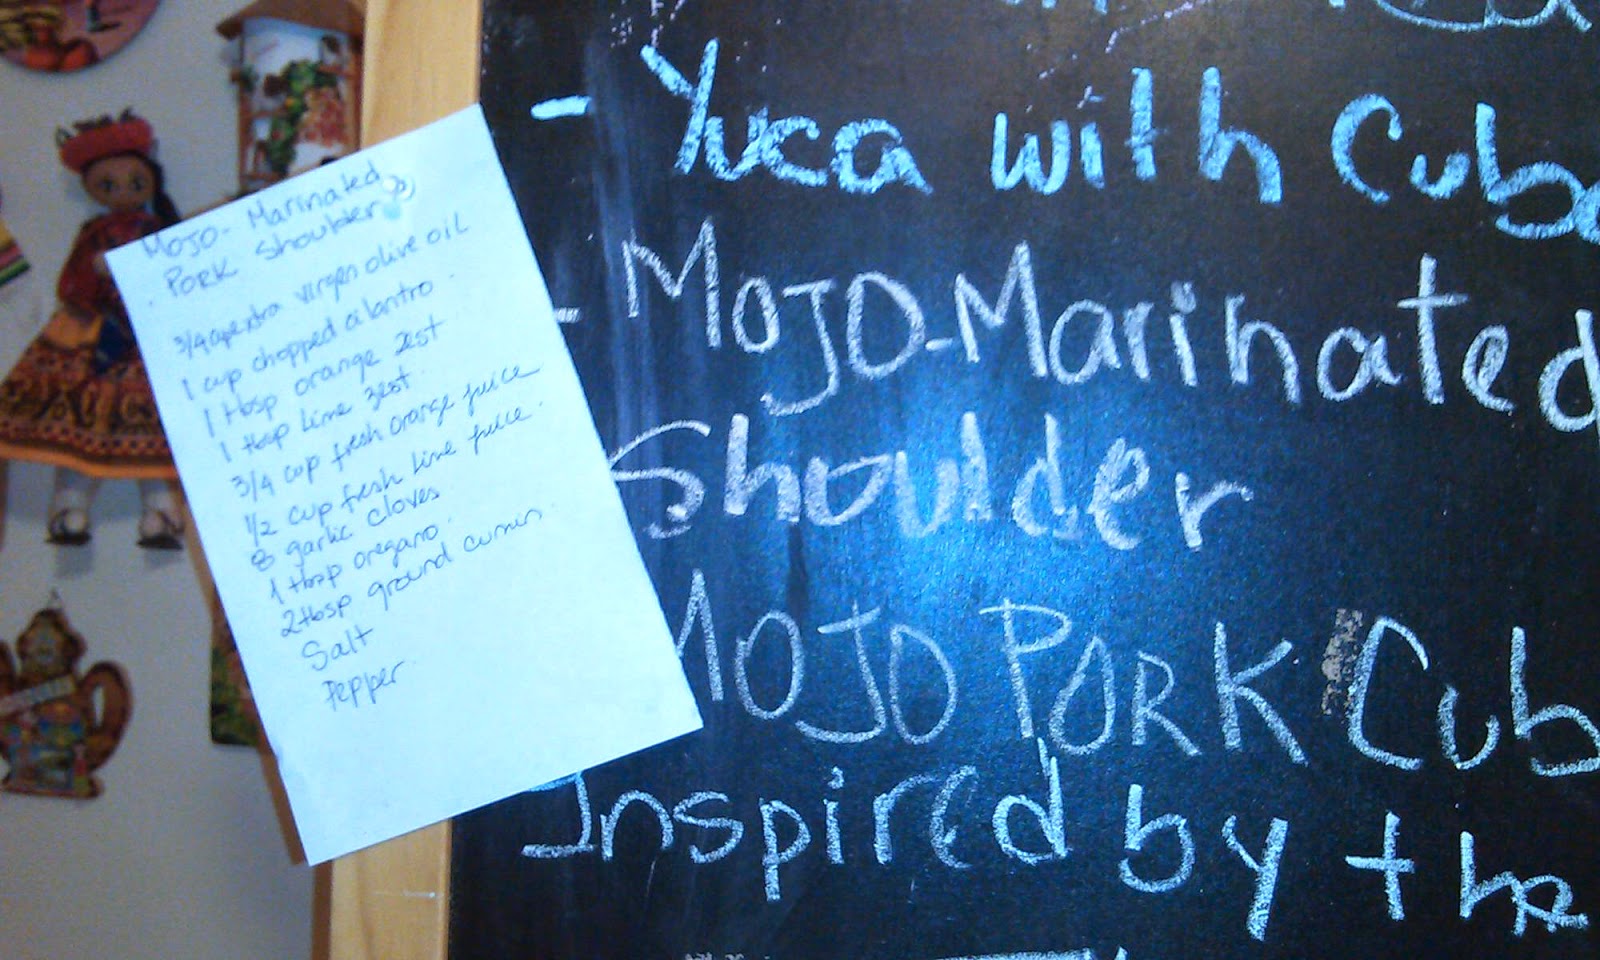 Mojo-Marinated
Pork Shoulder
3/4 cup extra virgen olive oil
1 cup chopped cilantro
1 tbsp orange zest
1 tbsp lime zest
3/4 cup fresh orange juice
1/2 cup fresh lime juice
8 garlic cloves
1 tbsp oregano
2 tbsp ground cumin
Salt
Pepper
- Yuca with Cub
- MOJO-Marinated
Shoulder
MOJO PORK Cub
Inspired by the